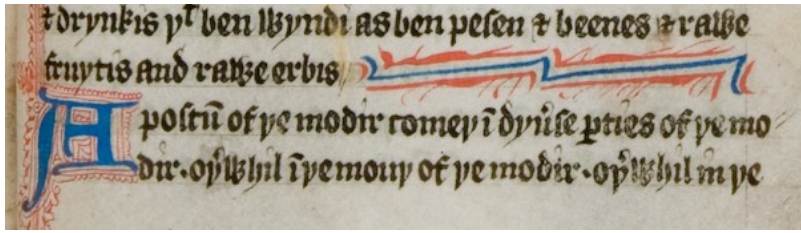 ⁊ drynkis yͭ ben wyndi as ben pesen ⁊ beenes ⁊ rawe
fruytis and rawe erbis
Apostū of þe modir comeþ ī dyu̓se ꝑties of þe mo
dir·oþ̓whil ī þe mouþ of þe modir·oþ̓whil in þe